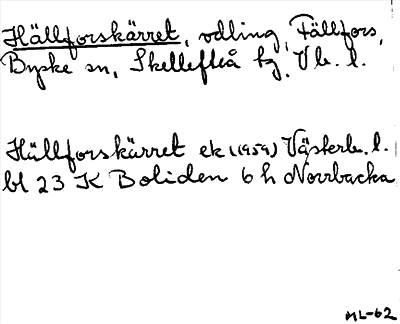 Hällforskärret, odling, Fällfors,
Byske sn, Skellefteå tg. Vb. l.
Hällforskärret ek (1959) Västerb. l.
bl 23 K Boliden 6 h Norrbacka
ML-62